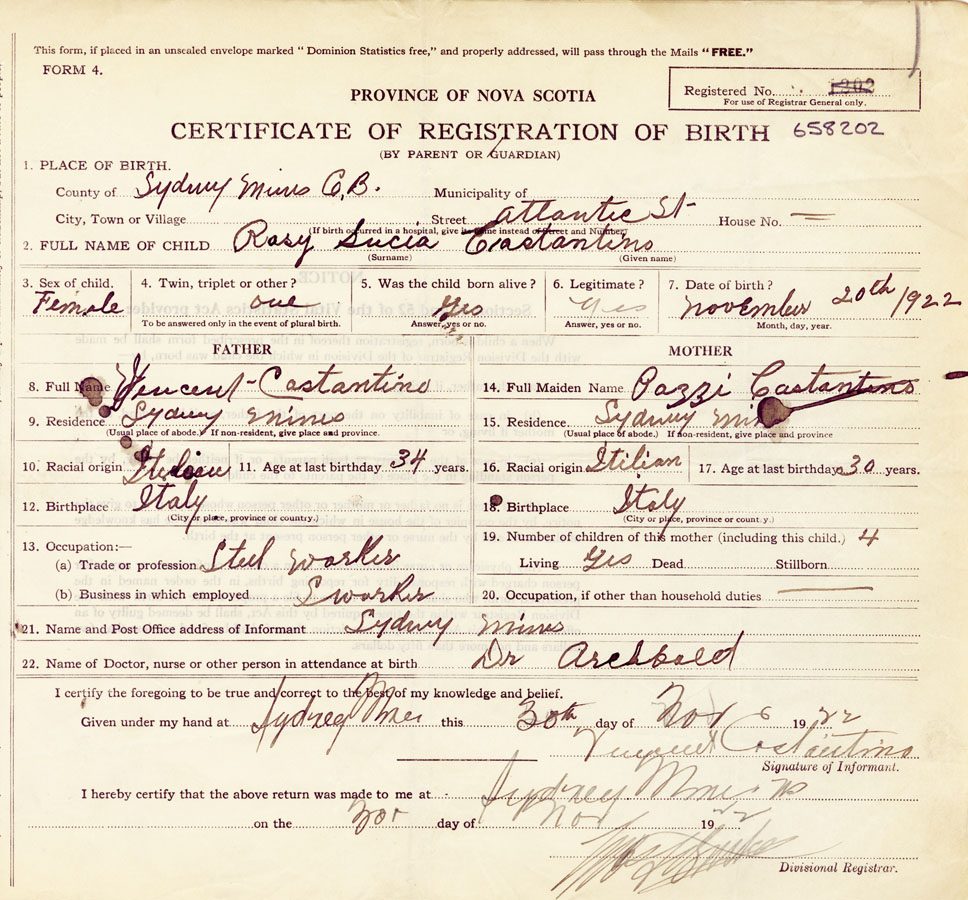 This form, if placed in an unsealed envelope marked " Dominion Statistics free," and properly addressed, will pass through the Mails "FREE."
FORM 4.
Registered No. 1202
For use of Registrar General only.
PROVINCE OF NOVA SCOTIA
CERTIFICATE OF REGISTRATION OF BIRTH 658202
(BY PARENT OR GUARDIAN)
1. PLACE OF BIRTH.
County of Sydney Mines C.B. Municipality of
City, Town or Village Street Atlantic St House No. —
(If birth occurred in a hospital, give its name instead of Street and Number)
2. FULL NAME OF CHILD Rosy Lucia Costantino
(Surname) (Given name)
3. Sex of child. 4. Twin, triplet or other? 5. Was the child born alive? 6. Legitimate? 7. Date of birth?
Female one Yes Yes November 20th 1922
To be answered only in the event of plural birth. Answer, yes or no. Answer, yes or no. Month, day, year.
FATHER MOTHER
8. Full Name Vincent Costantino 14. Full Maiden Name Pozzi Costantino
9. Residence Sydney Mines 15. Residence Sydney Mines
(Usual place of abode.) If non-resident, give place and province. (Usual place of abode.) If non-resident, give place and province
10. Racial origin 11. Age at last birthday 34 years. 16. Racial origin Itilian 17. Age at last birthday 30 years.
12. Birthplace Italy 18. Birthplace Italy
(City or place, province or country.) (City or place, province or country.)
13. Occupation:— 19. Number of children of this mother (including this child.) 4
(a) Trade or profession Steel Worker Living Yes Dead Stillborn
(b) Business in which employed S worker 20. Occupation, if other than household duties —
21. Name and Post Office address of Informant Sydney Mines
22. Name of Doctor, nurse or other person in attendance at birth Dr Archbald
I certify the foregoing to be true and correct to the best of my knowledge and belief.
Given under my hand at Sydney Mines this 30th day of Nov 1922
Costantino
Signature of Informant.
I hereby certify that the above return was made to me at Sydney Mines NS
on the 30 day of Nov 1922
Divisional Registrar.